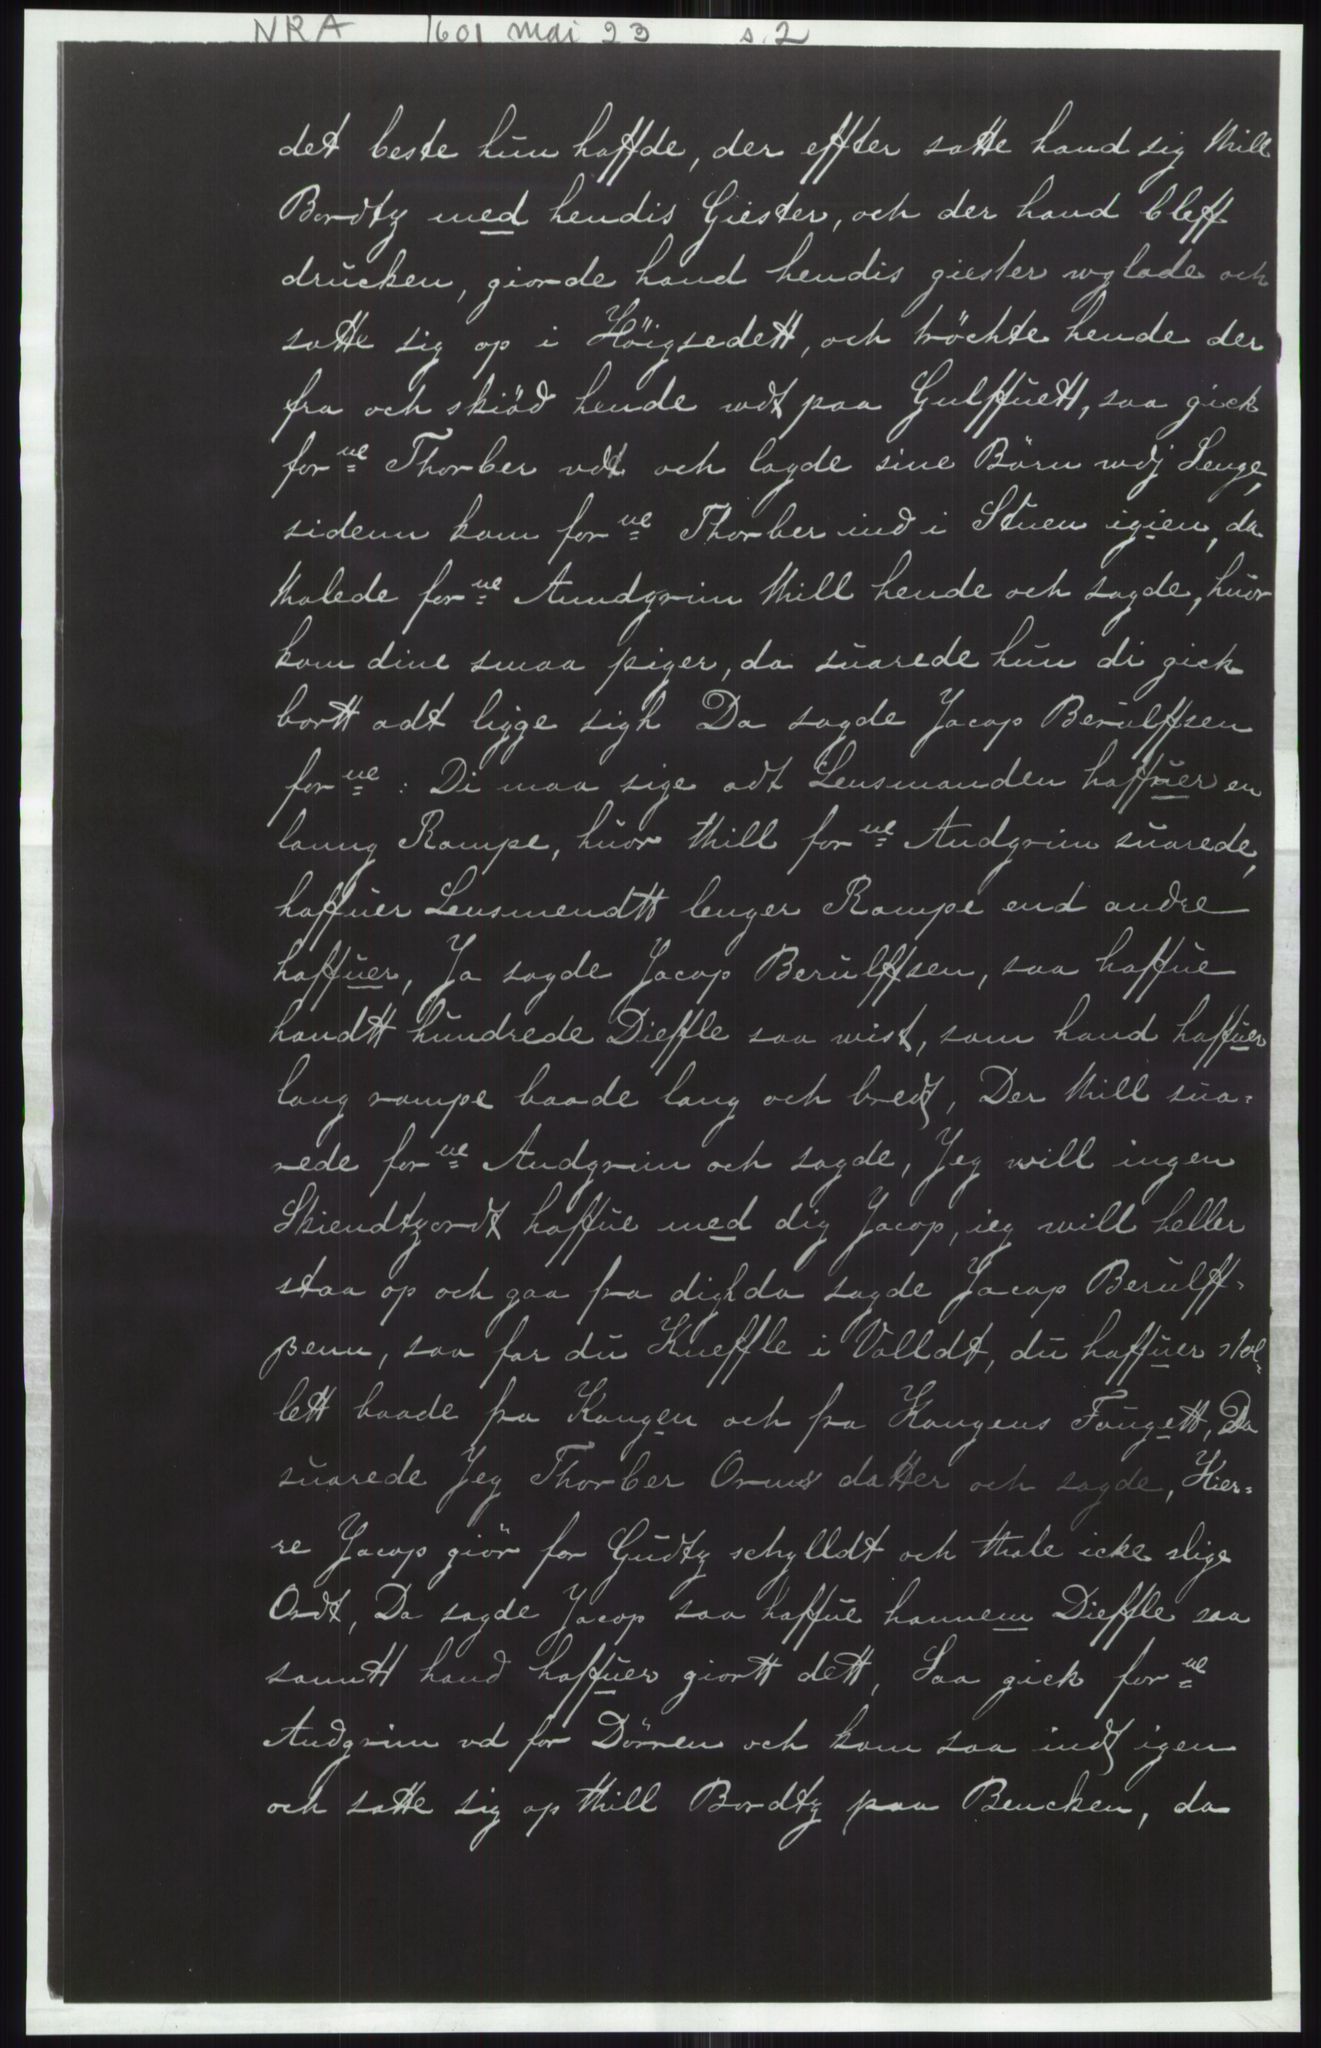 NRA 1601 mai 23 s. 2
det beste hun haffde, der effter satte hand sig thill
Bordtz med hendis Giester, och der hand bleff
drucken, giorde hand hendis giester wglade och
satte sig op i Höigsedett, och tröchte hende der
fra och skiöd hende wdt paa Gulffuett, saa gick
forne Thorber vdt och lagde sine Börn wdj Senge,
sidenn kom forne Thorber ind i Stuen igien, da
thalede forne Anndgrim thill hende och sagde, huor
kom dine smaa piger, da suarede hun di gick
bortt adt ligge sigh Da sagde Jacop Berulffsen
forne: Di maa sige adt Lensmanden haffuer en
lanng Rompe, huor thill forne Andgrim suarede,
haffuer Lensmendtt lenger Rompe end andre
haffuer, Ja sagde Jacop Berulffsen, saa haffue
handtt hundrede Dieffle saa wist, som hand haffuer
lang rompe baade lang och bredt, Der thill sua-
rede forne Andgrim och sagde, Jeg will ingen
Skiendtzordt haffue med dig Jacop, ieg will heller
staa op och gaa fra digh da sagde Jacop Berulff-
ßenn, saa far du Kneffle i Valldt, du haffuer stol-
lett baade fra Kongen och fra Kongens Fougett, Da
suarede Jeg Thorber Orms datter och sagde, Kier-
re Jacop giör for Gudtz schylldt och thale icke slige
Ordt, Da sagde Jacop saa haffue hannem Dieffle saa
sanntt hand haffuer giortt dett, Saa gick forne
Andgrim vd for Dörren och kom saa indt igen
och satte sig op thill Bordtz paa Bencken, da